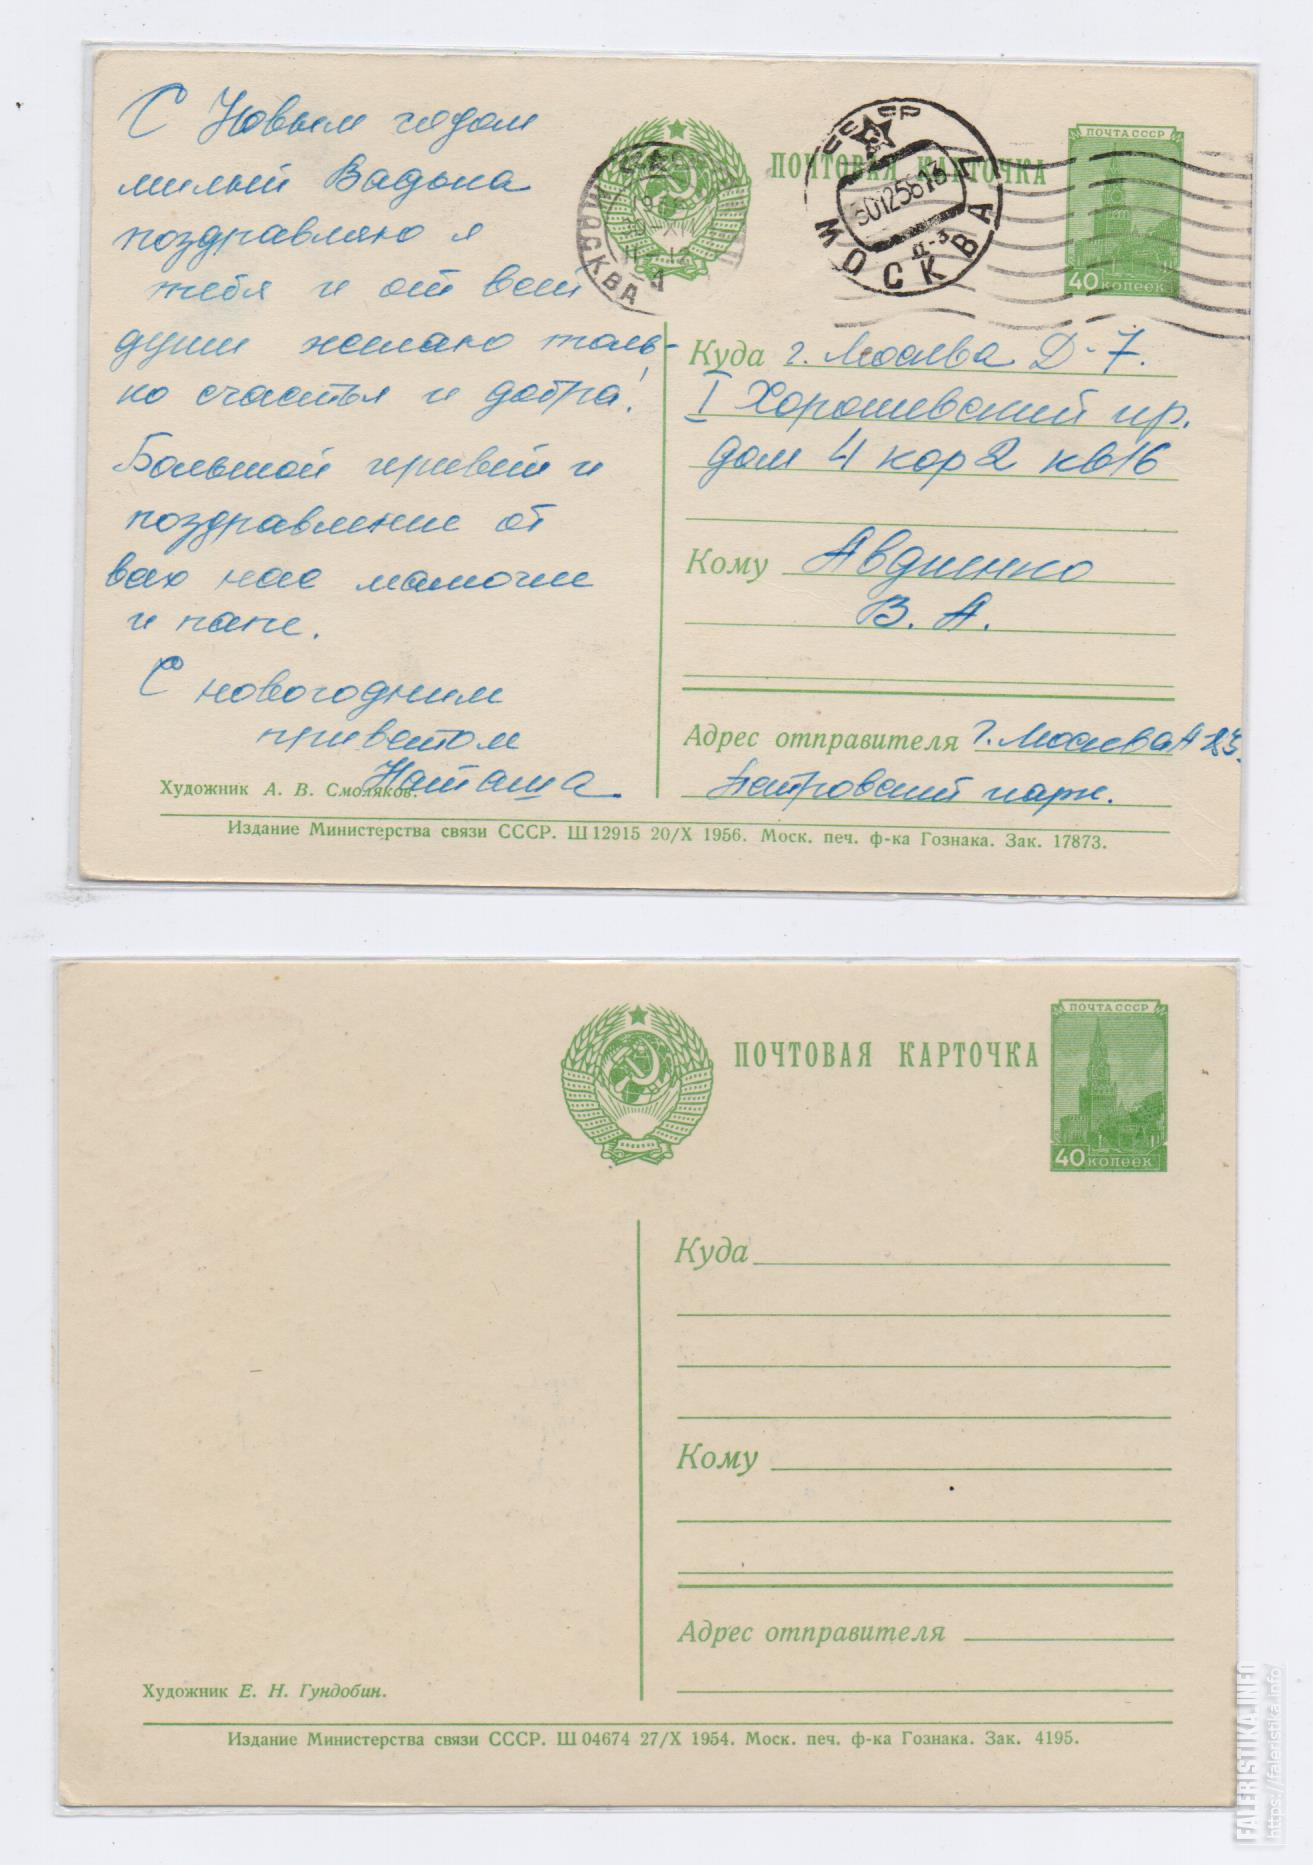 С Новым годом
милый Вадька
поздравляю я
тебя и от всей
души желаю толь-
ко счастья и добра!
Большой привет и
поздравление от
всех нас мамочке
и папе.
С новогодним
приветом
Наташа
Художник А. В. Смоляков.
ПОЧТОВАЯ КАРТОЧКА
МОСКВА
СССР
30125616
МОСКВА
Д-3
ПОЧТА СССР
40 КОПЕЕК
Куда г. Москва Д-7.
I Хорошевский пр.
дом 4 кор 2 кв 16
Кому Авдиенко
В. А.
Адрес отправителя г. Москва А 83
Петровский парк.
Издание Министерства связи СССР. Ш 12915 20/X 1956. Моск. печ. ф-ка Гознака. Зак. 17873.
ПОЧТОВАЯ КАРТОЧКА
ПОЧТА СССР
40 КОПЕЕК
Куда
Кому
Адрес отправителя
Художник Е. Н. Гундобин.
Издание Министерства связи СССР. Ш 04674 27/X 1954. Моск. печ. ф-ка Гознака. Зак. 4195.
FALERISTIKA.INFO
https://faleristika.info